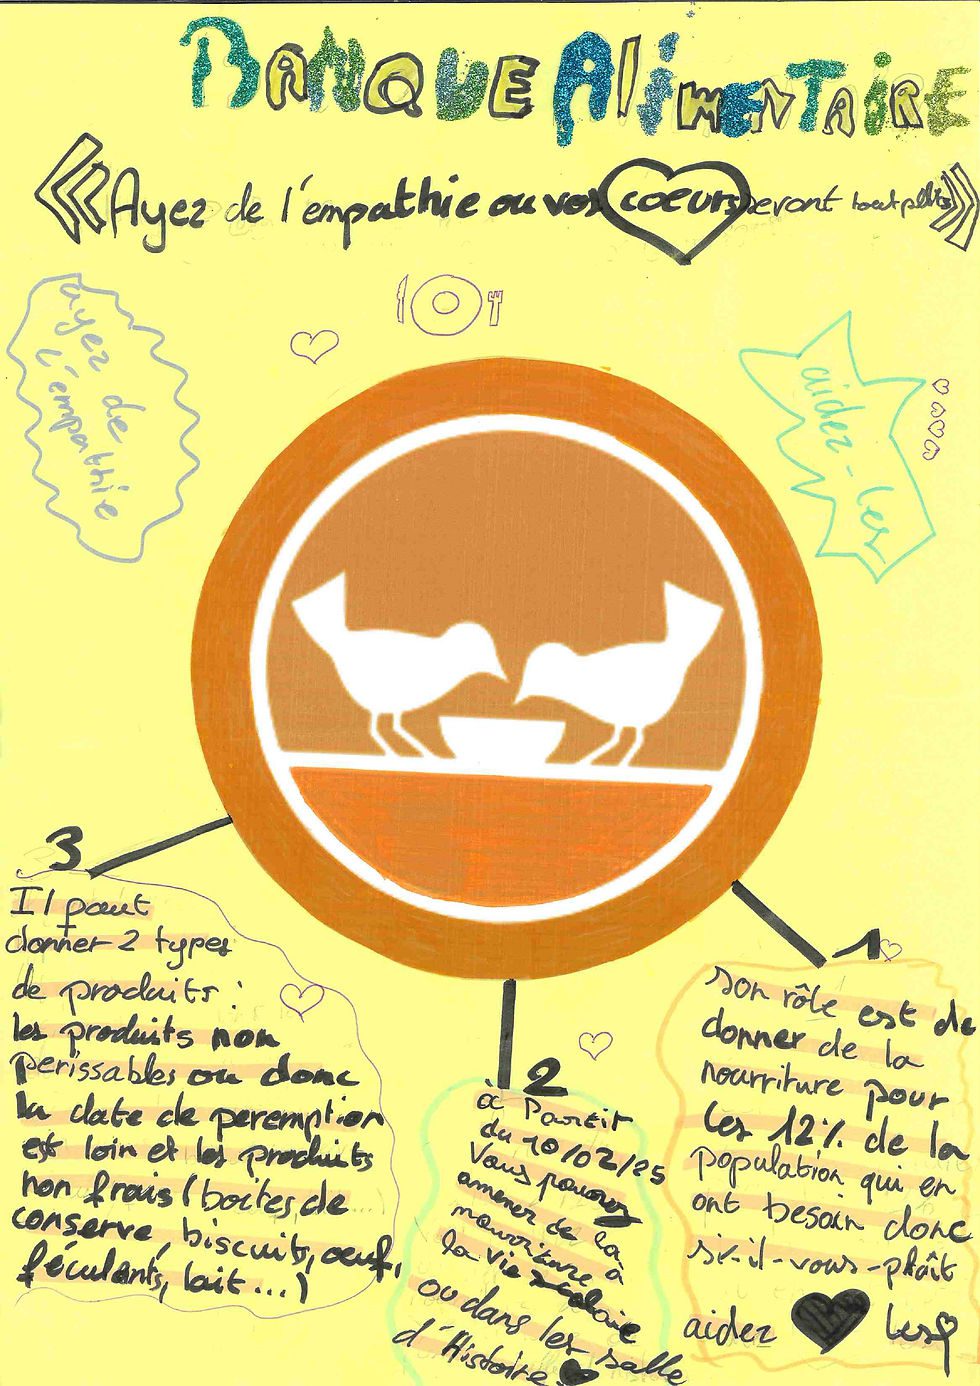 BANQUE ALIMENTAIRE
« Ayez de l'empathie ou vos coeurs seront tout petits »
ayez
de
l'empathie
aidez-les
3
Il peut
donner 2 types
de produits :
les produits non
perissables ou donc
la date de peremption
est loin et les produits
non frais (boites de
conserve, biscuits, oeuf,
féculents, lait...)
2
à Partir
du 10/02/25
Vous pouvez
amener de la
nourriture à
la vie scolaire
ou dans les salle
d'Histoire.
1
son rôle est de
donner de la
nourriture pour
les 12% de la
population qui en
ont besoin donc
s'il-vous-plaît
aidez les